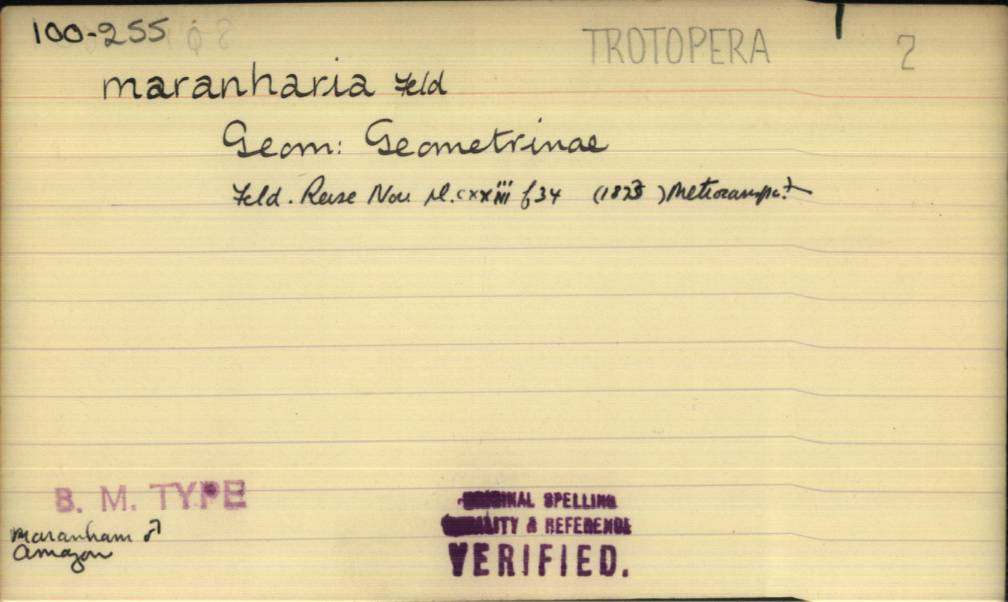 100-255
TROTOPERA 2
maranharia Feld
Geom: Geometrinae
Feld. Reise Nov. pl. cxxiii f34 (1873) Metrocampa?
B. M. TYPE
Maranham ♂
Amazon
ORIGINAL SPELLING
LOCALITY & REFERENCE
VERIFIED.